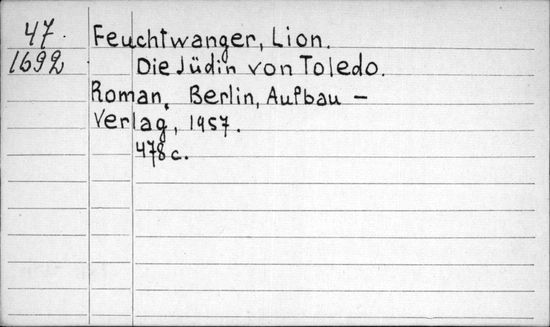 47. Feuchtwanger, Lion.
1692 Die Jüdin von Toledo.
Roman. Berlin, Aufbau —
Verlag, 1957.
478 c.